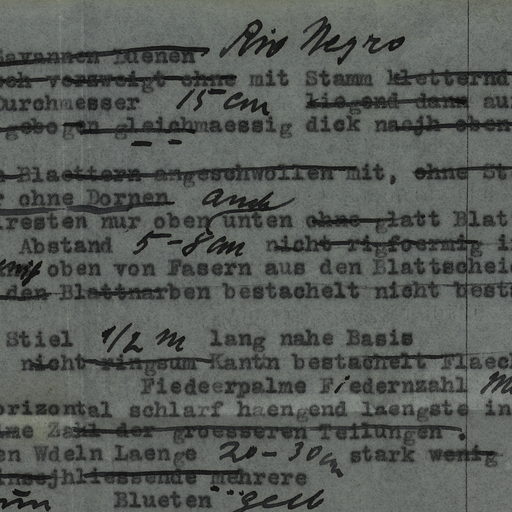 Savannen Duenen Rio Negro
och verzweigt ohne mit Stamm kletternd
Durchmesser 15 cm liegend dann au
gebogen gleichmaessig dick nach oben
n Blaettern angeschwollen mit, ohne St
r ohne Dornen auch
lresten nur oben unten ohne glatt Blat
Abstand 5-8 cm nicht rigfoermig i
oben von Fasern aus den Blattscheid
den Blattnarben bestachelt nicht best
Stiel 1/2 m lang nahe Basis
nicht ringsum Kantn bestachelt Flaec
Fiedeerpalme Fiedernzahl
orizontal schlarf haengend laengste in
ze Zahl der groesseren Teilungen.
en Wdeln Laenge 20-30 cm stark wenig
insejhliessende mehrere
Blueten gelb